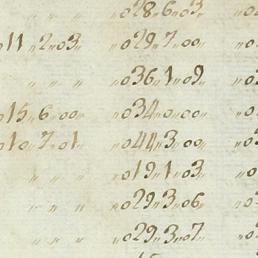 " " " "028"6"03" "0
011"2"03" "029"7"00" "0
" " " "036"1"09" "0
015"6"00" "034"0"00" "0
010"7"01" "044"3"00" "0
" " " "019"1"03" "0
" " " "029"3"06" "0
" " " "029"3"07" "0